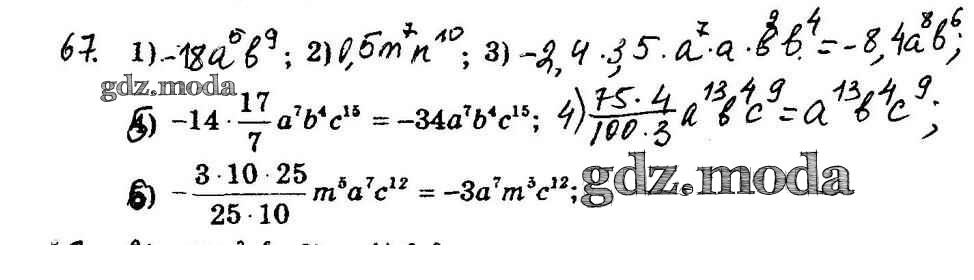 67. 1) -18a⁵b⁹; 2) 0,5m⁷n¹⁰; 3) -2,4 · 3,5 · a⁷ · a · b² · b⁴ = -8,4a⁸b⁶;
gdz.moda
5) -14 · 17/7 a⁷b⁴c¹⁵ = -34a⁷b⁴c¹⁵; 4) 75 · 4/100 · 3 a¹³b⁴c⁹ = a¹³b⁴c⁹;
6) - 3 · 10 · 25/25 · 10 m⁵a⁷c¹² = -3a⁷m⁵c¹²; gdz.moda